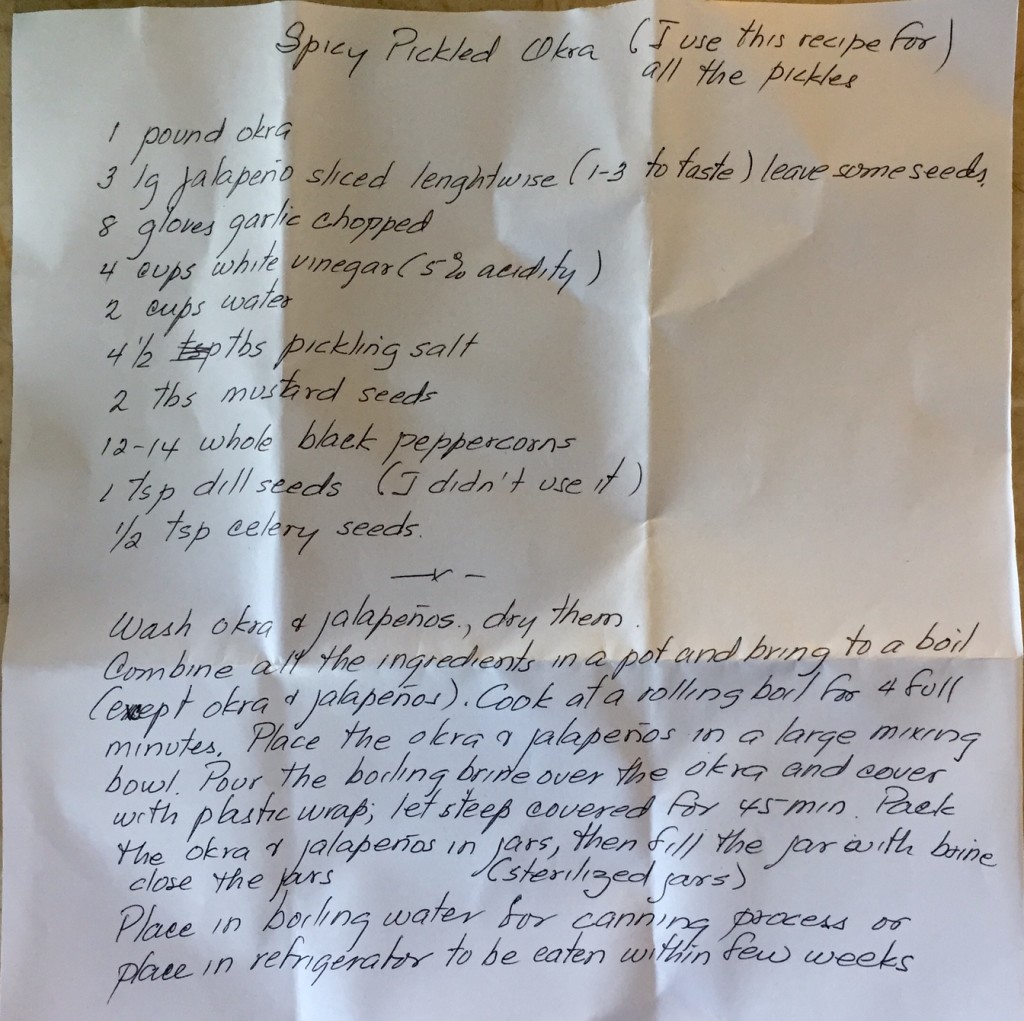 Spicy Pickled Okra (I use this recipe for)
all the pickles
1 pound okra
3 lg jalapeño sliced lenghtwise (1-3 to taste) leave some seeds.
8 gloves garlic chopped
4 cups white vinegar (5% acidity)
2 cups water
4 1/2 tbs pickling salt
2 tbs mustard seeds
12-14 whole black peppercorns
1 Tsp dill seeds (I didn't use it)
1/2 tsp celery seeds.
Wash okra & jalapeños., dry them.
Combine all the ingredients in a pot and bring to a boil
(except okra & jalapeños). Cook at a rolling boil for 4 full
minutes. Place the okra & jalapeños in a large mixing
bowl. Pour the boiling brine over the okra and cover
with plastic wrap; let steep covered for 45 min. Pack
the okra & jalapeños in jars, then fill the jar with brine
close the jars (sterilized jars)
Place in boiling water for canning process or
place in refrigerator to be eaten within few weeks